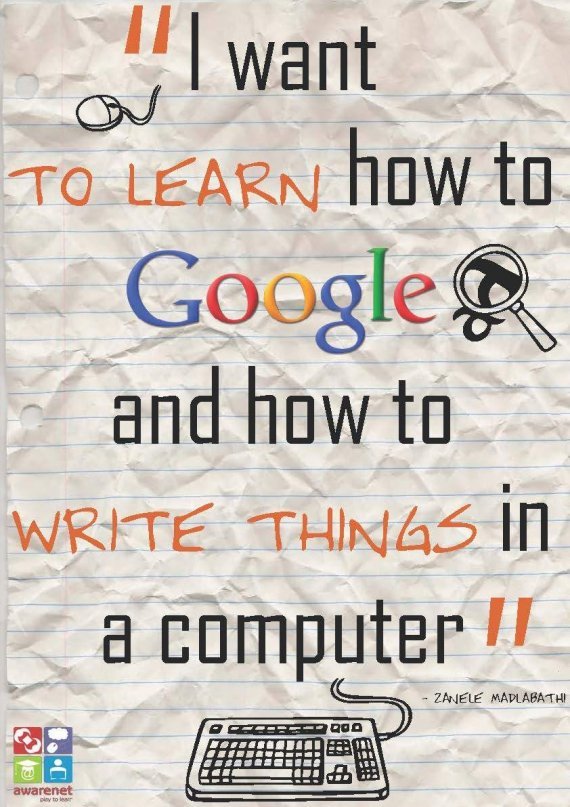 "I want
TO LEARN how to
Google
and how to
WRITE THINGS in
a computer"
- ZANELE MADLABATHI
awarenet
play to learn